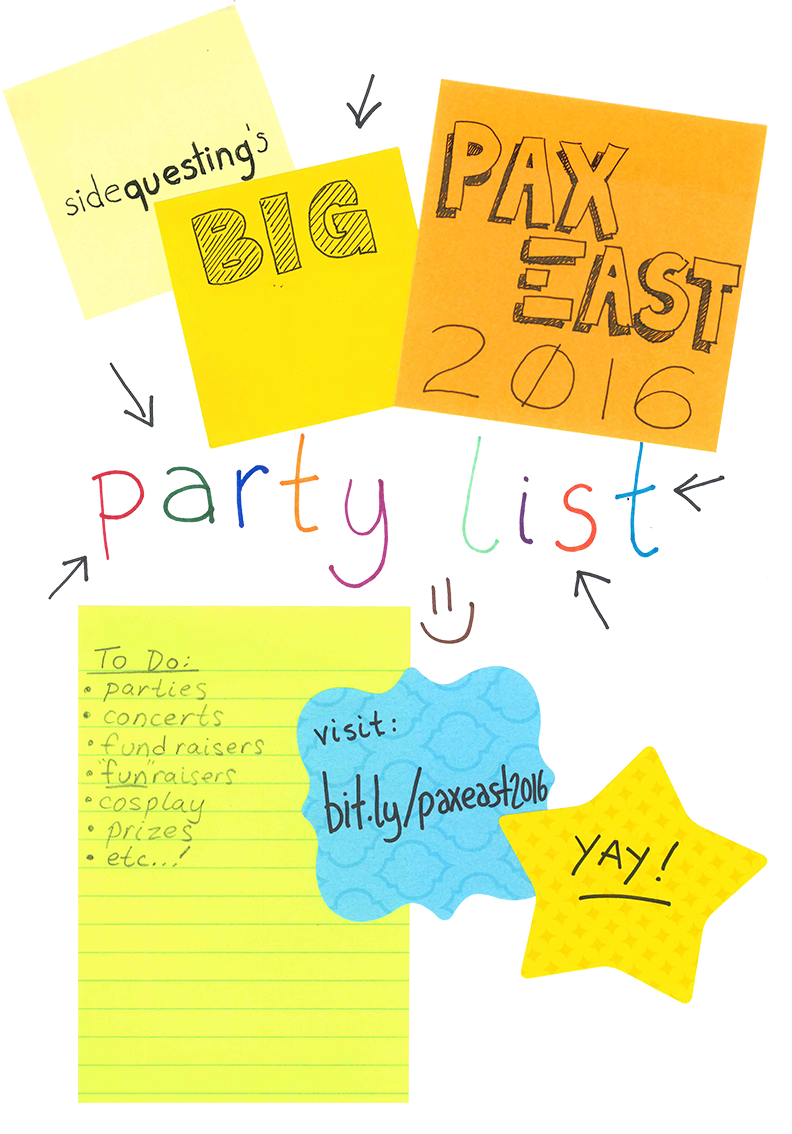 sidequesting's
BIG
PAX
EAST
2016
party list
To Do:
• parties
• concerts
• fund raisers
• "fun"raisers
• cosplay
• prizes
• etc...!
visit:
bit.ly/paxeast2016
YAY!